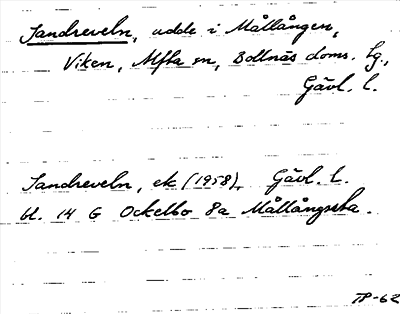 Sandreveln, udde i Mållången,
Viken, Alfta sn, Bollnäs doms. tg.,
Gävl. l.
Sandreveln, ek (1958), Gävl. l.
bl. 14 G Ockelbo 8a Mållångssta.
TP-62